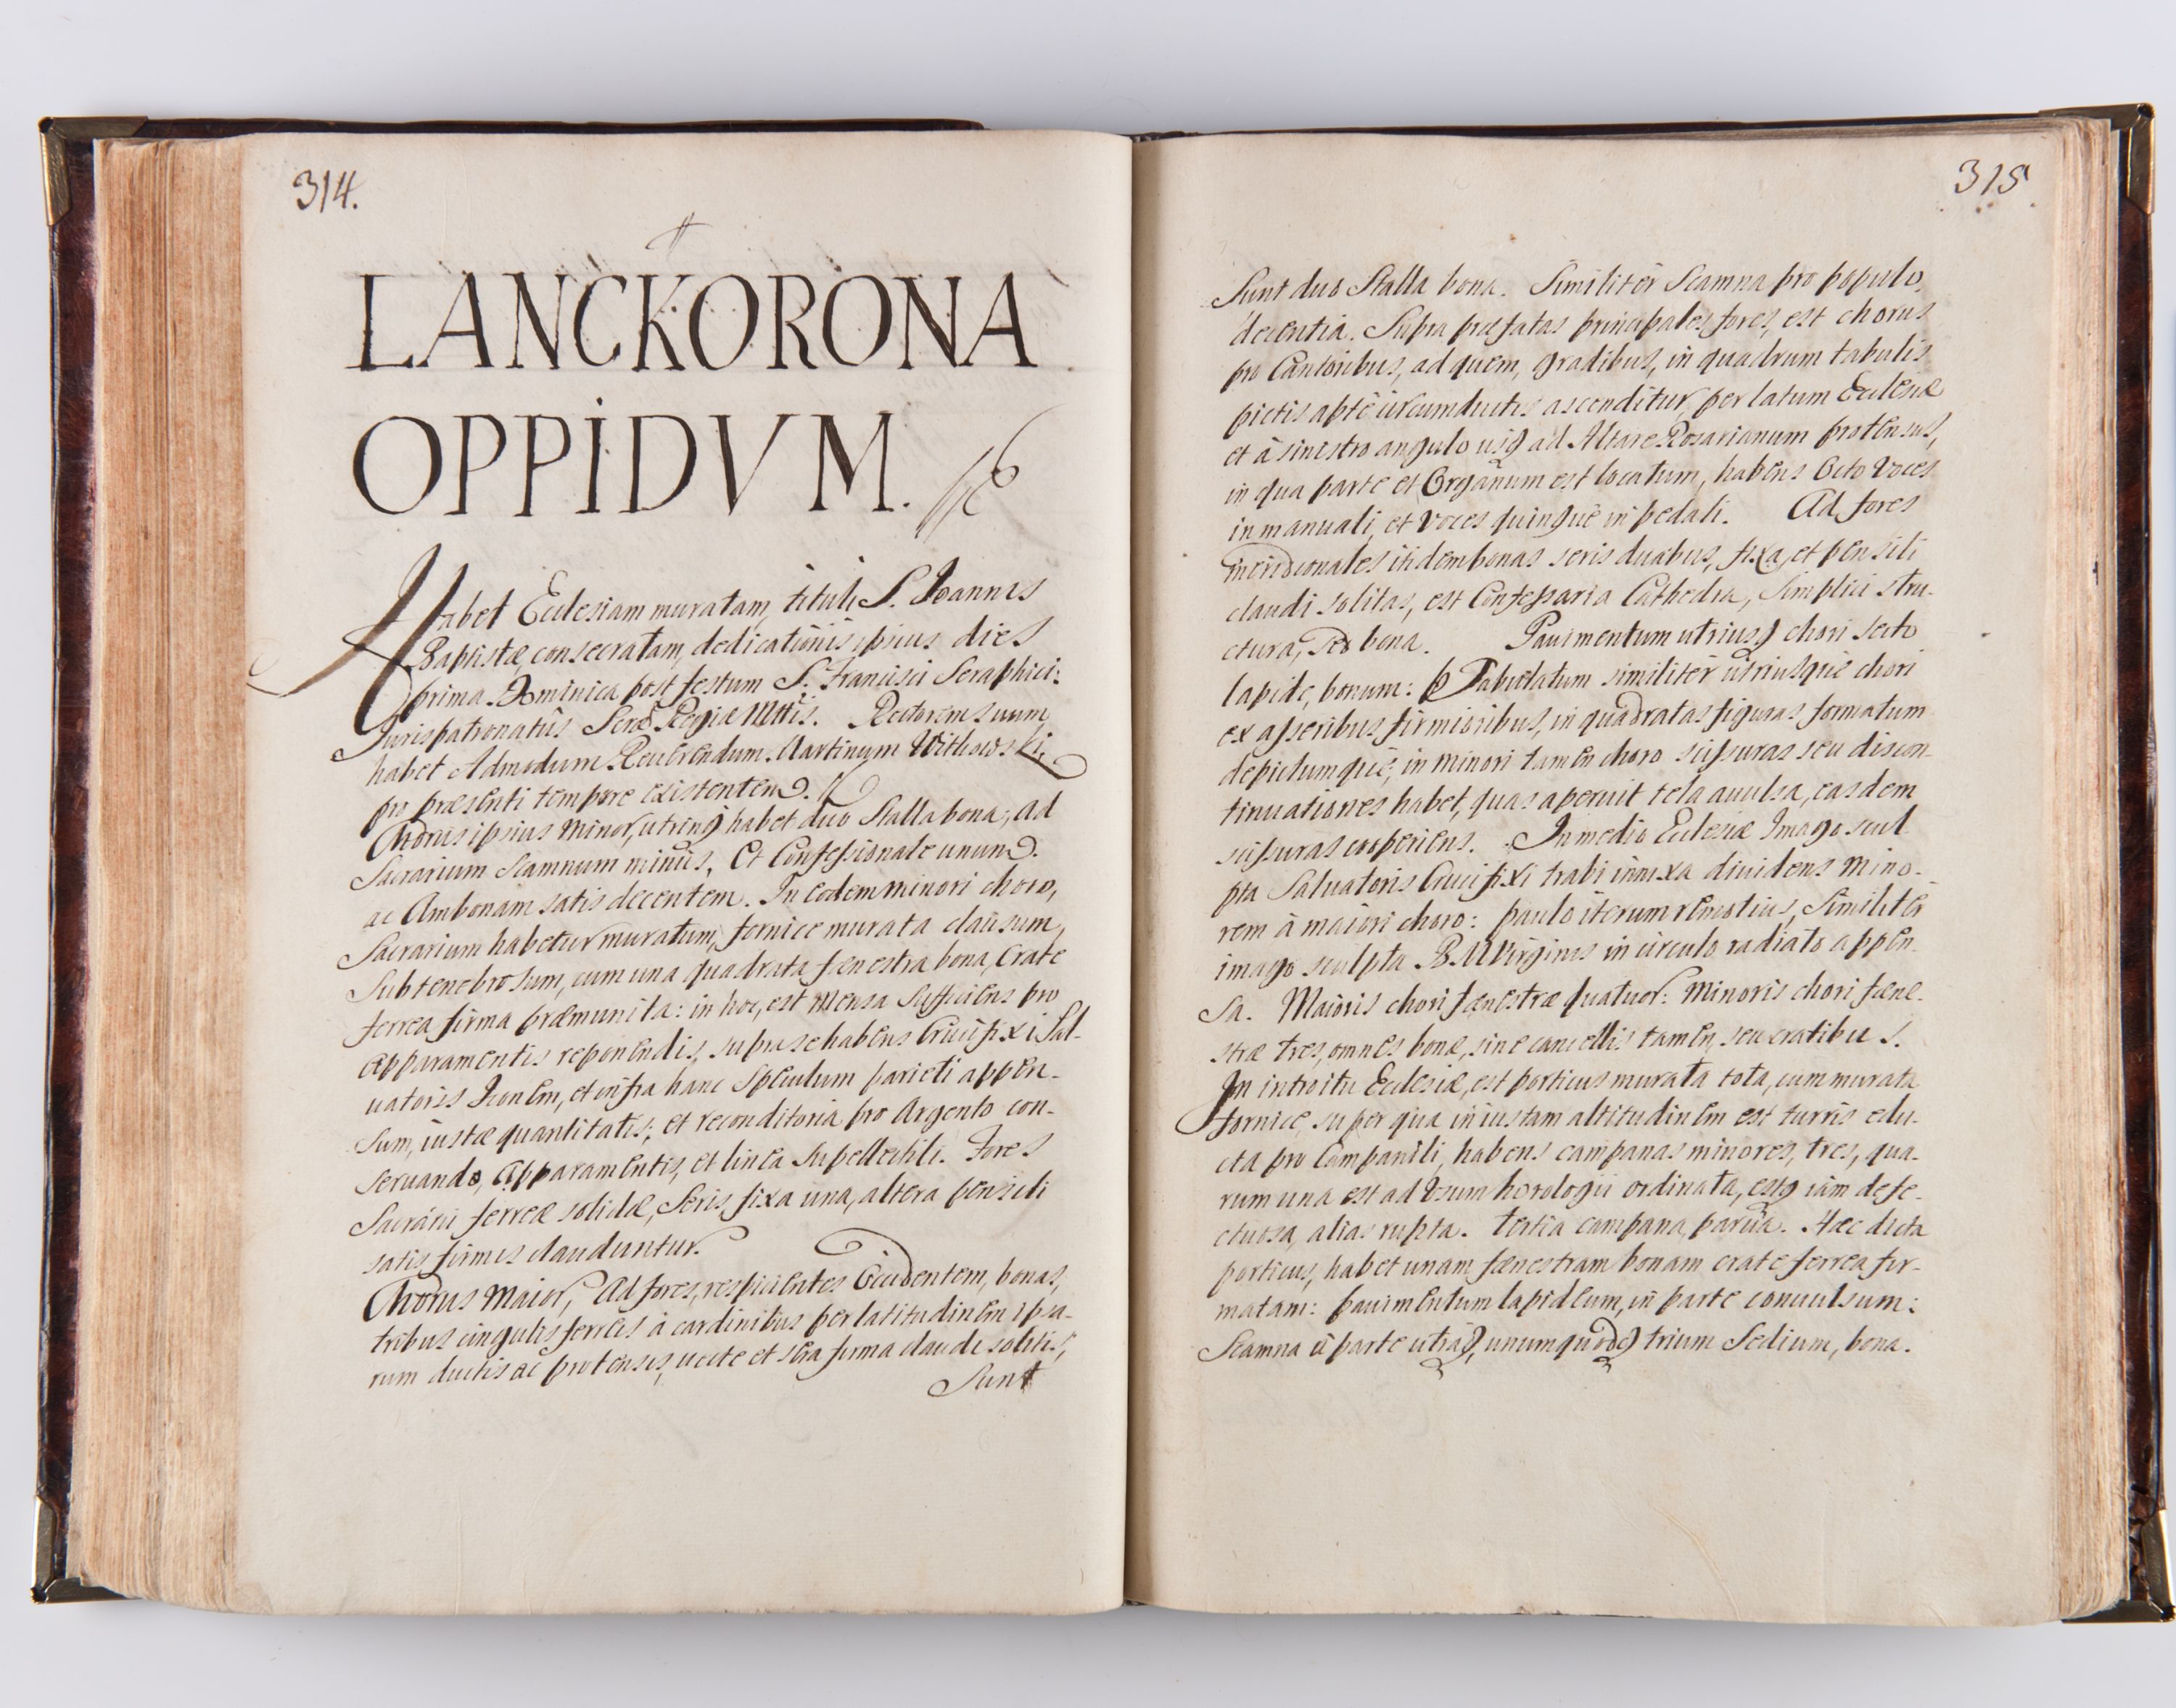 314.
LANCKORONA
OPPIDVM.
Habet Ecclesiam muratam, tituli S. Ioannis
Baptistæ, consecratam, dedicationis ipsius dies
prima Dominica post festum S. Francisci Seraphici:
Jurispatronatûs Regiæ Mttis. Rectorem suum,
habet Admodum Reuerendum Martinum Withowski,
pro præsenti tempore existentem.
Chorus ipsius Minor, utrinq habet duo Stalla bona, ad
Sacrarium Scamnum minus, Et Confessionale unum.
ac Ambonam satis decentem. In eodem minori choro,
Sacrarium habetur muratum, fornice murata clausum,
Subtenebrosum, cum una quadrata fænestra bona, Crate
ferrea firma præmunita: in hoc, est Mensa Sufficiens pro
Apparamentis reponendis, supra se habens Crucifixi Sal-
uatoris Iconem, et infra hanc Speculum parieti appen-
sum, iustæ quantitatis; et reconditoria pro Argento con-
seruando, Apparamentis, et linea Supellectili. Fores
Sacrarii ferreæ solidæ, Seris, fixa una, altera pensili
satis firmis clauduntur.
Chorus Maior, Ad fores, respicientes Occidentem, bonas,
tribus cingulis ferreis à cardinibus per latitudinem ipsa-
rum ductis ac protensis, uecte et sera firma claudi solitis,
Sunt
315
Sunt duo Stalla bona. Similitèr Scamna pro populo,
decentia. Supra præfatas principales fores, est chorus
pro Cantoribus, ad quem, gradibus, in quadrum tabulis
pictis aptè circumductis ascenditur, per latum Ecclesiæ
et à sinistro angulo usq ad Altare Rosarianum protensus,
in qua parte et Organum est locatum, habens Octo Voces
in manuali, et Voces quinque in pedali. Ad fores
meridionales itidem bonas seris duabus, fixa, et pensili
claudi solitas, est Confessaria Cathedra, Simplici stru-
ctura, sed bona. Pauimentum utriusq chori secto
lapide, bonum: Tabulatum similitèr utriusque chori
ex asseribus firmioribus, in quadratas figuras formatum
depictumque, in minori tamen choro scissuras seu discon-
tinuationes habet, quas aperuit tela auulsa, easdem
scissuras cooperiens. In medio Ecclesiæ Imago scul-
pta Saluatoris Crucifixi trabi innixa diuidens mino-
rem à maiori choro: paulo iterum remotius, Similitèr
imago sculpta B. M Virginis in circulo radiato appen-
sa. Maioris chori fænestræ quatuor: Minoris chori fæne-
stræ tres, omnes bonæ, sine cancellis tamen, seu cratibus.
In introitu Ecclesiæ, est porticus murata tota, cum murata
fornice, super qua in iustam altitudinem est turris edu-
cta pro Campanili, habens campanas minores, tres, qua-
rum una est ad Usum horologii ordinata, estq iàm defe-
ctuosa, alias rupta. tertia campana parua. Hæc dicta
porticus, habet unam fænestram bonam crate ferrea fir-
matam: pauimentum lapideum, in parte conuulsum:
Scamna à parte utraq, unumquodq trium Sedium, bona.